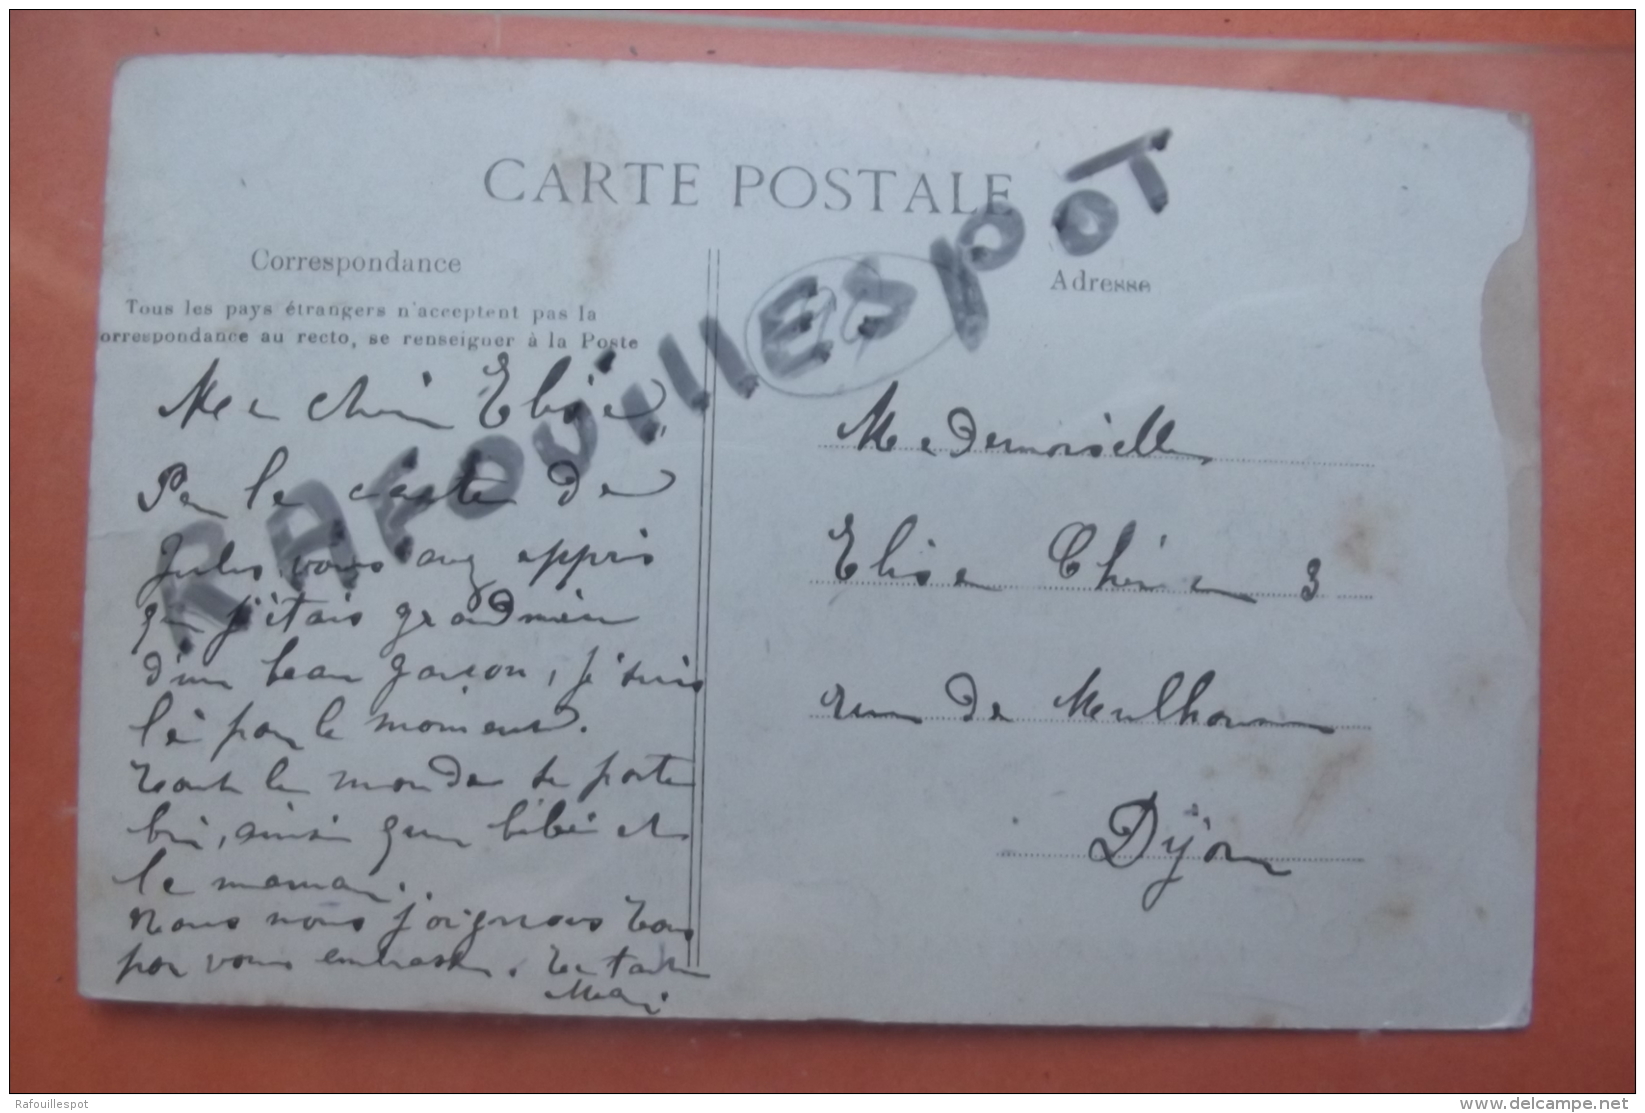 CARTE POSTALE
Correspondance
Tous les pays étrangers n'acceptent pas la
orrespondance au recto, se renseigner à la Poste
Ma chère Elise,
Par la carte de
Jules, vous avez appris
que j'étais grandmère
d'un beau garson, je suis
là pour le moment.
tout le monde se porte
bien, ainsi que bébé et
la maman.
Nous nous joignons tous
pour vous embrasser. Ta tante
Marie
Adresse
Mademoiselle
Elise 3
rue de Mulhouse
Dijon
RAFOUILLESPOT
Rafouillespot
www.delcampe.net